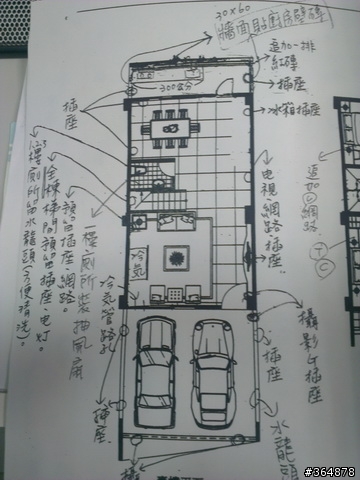 30×60
牆面貼廚房壁磚
追加一排
紅磚
插座
冰箱插座
300公分
插座
電視網路插座
追加網路
T
C
1.2.3樓廁所留水龍頭(方便清洗)。
全棟梯間預留插座、電灯。
預留插座、網路
一樓廁所裝抽風扇
冷氣
冷氣管路孔
攝影機插座
插座
水龍頭
插座
#364878